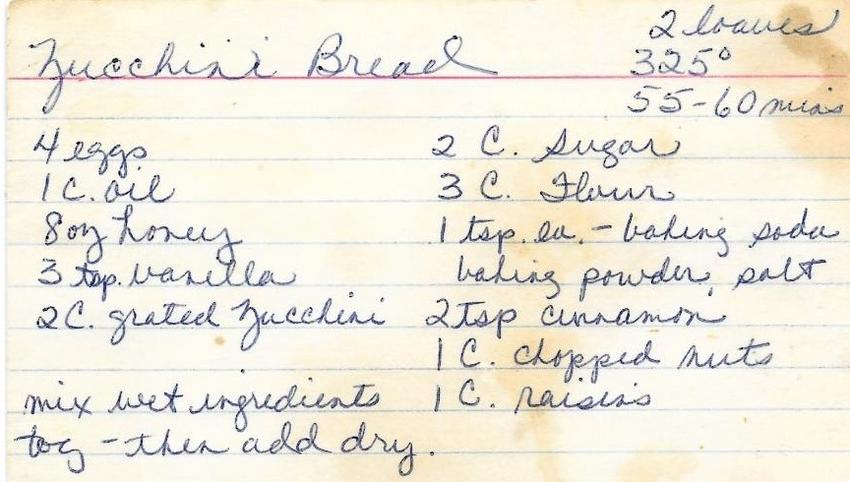 Zucchini Bread
2 loaves
325°
55-60 mins
4 eggs
1 C. oil
8 oz honey
3 tsp. vanilla
2 C. grated Zucchini
mix wet ingredients
tog - then add dry.
2 C. Sugar
3 C. Flour
1 tsp. ea. - baking soda
baking powder, salt
2 tsp cinnamon
1 C. chopped nuts
1 C. raisins